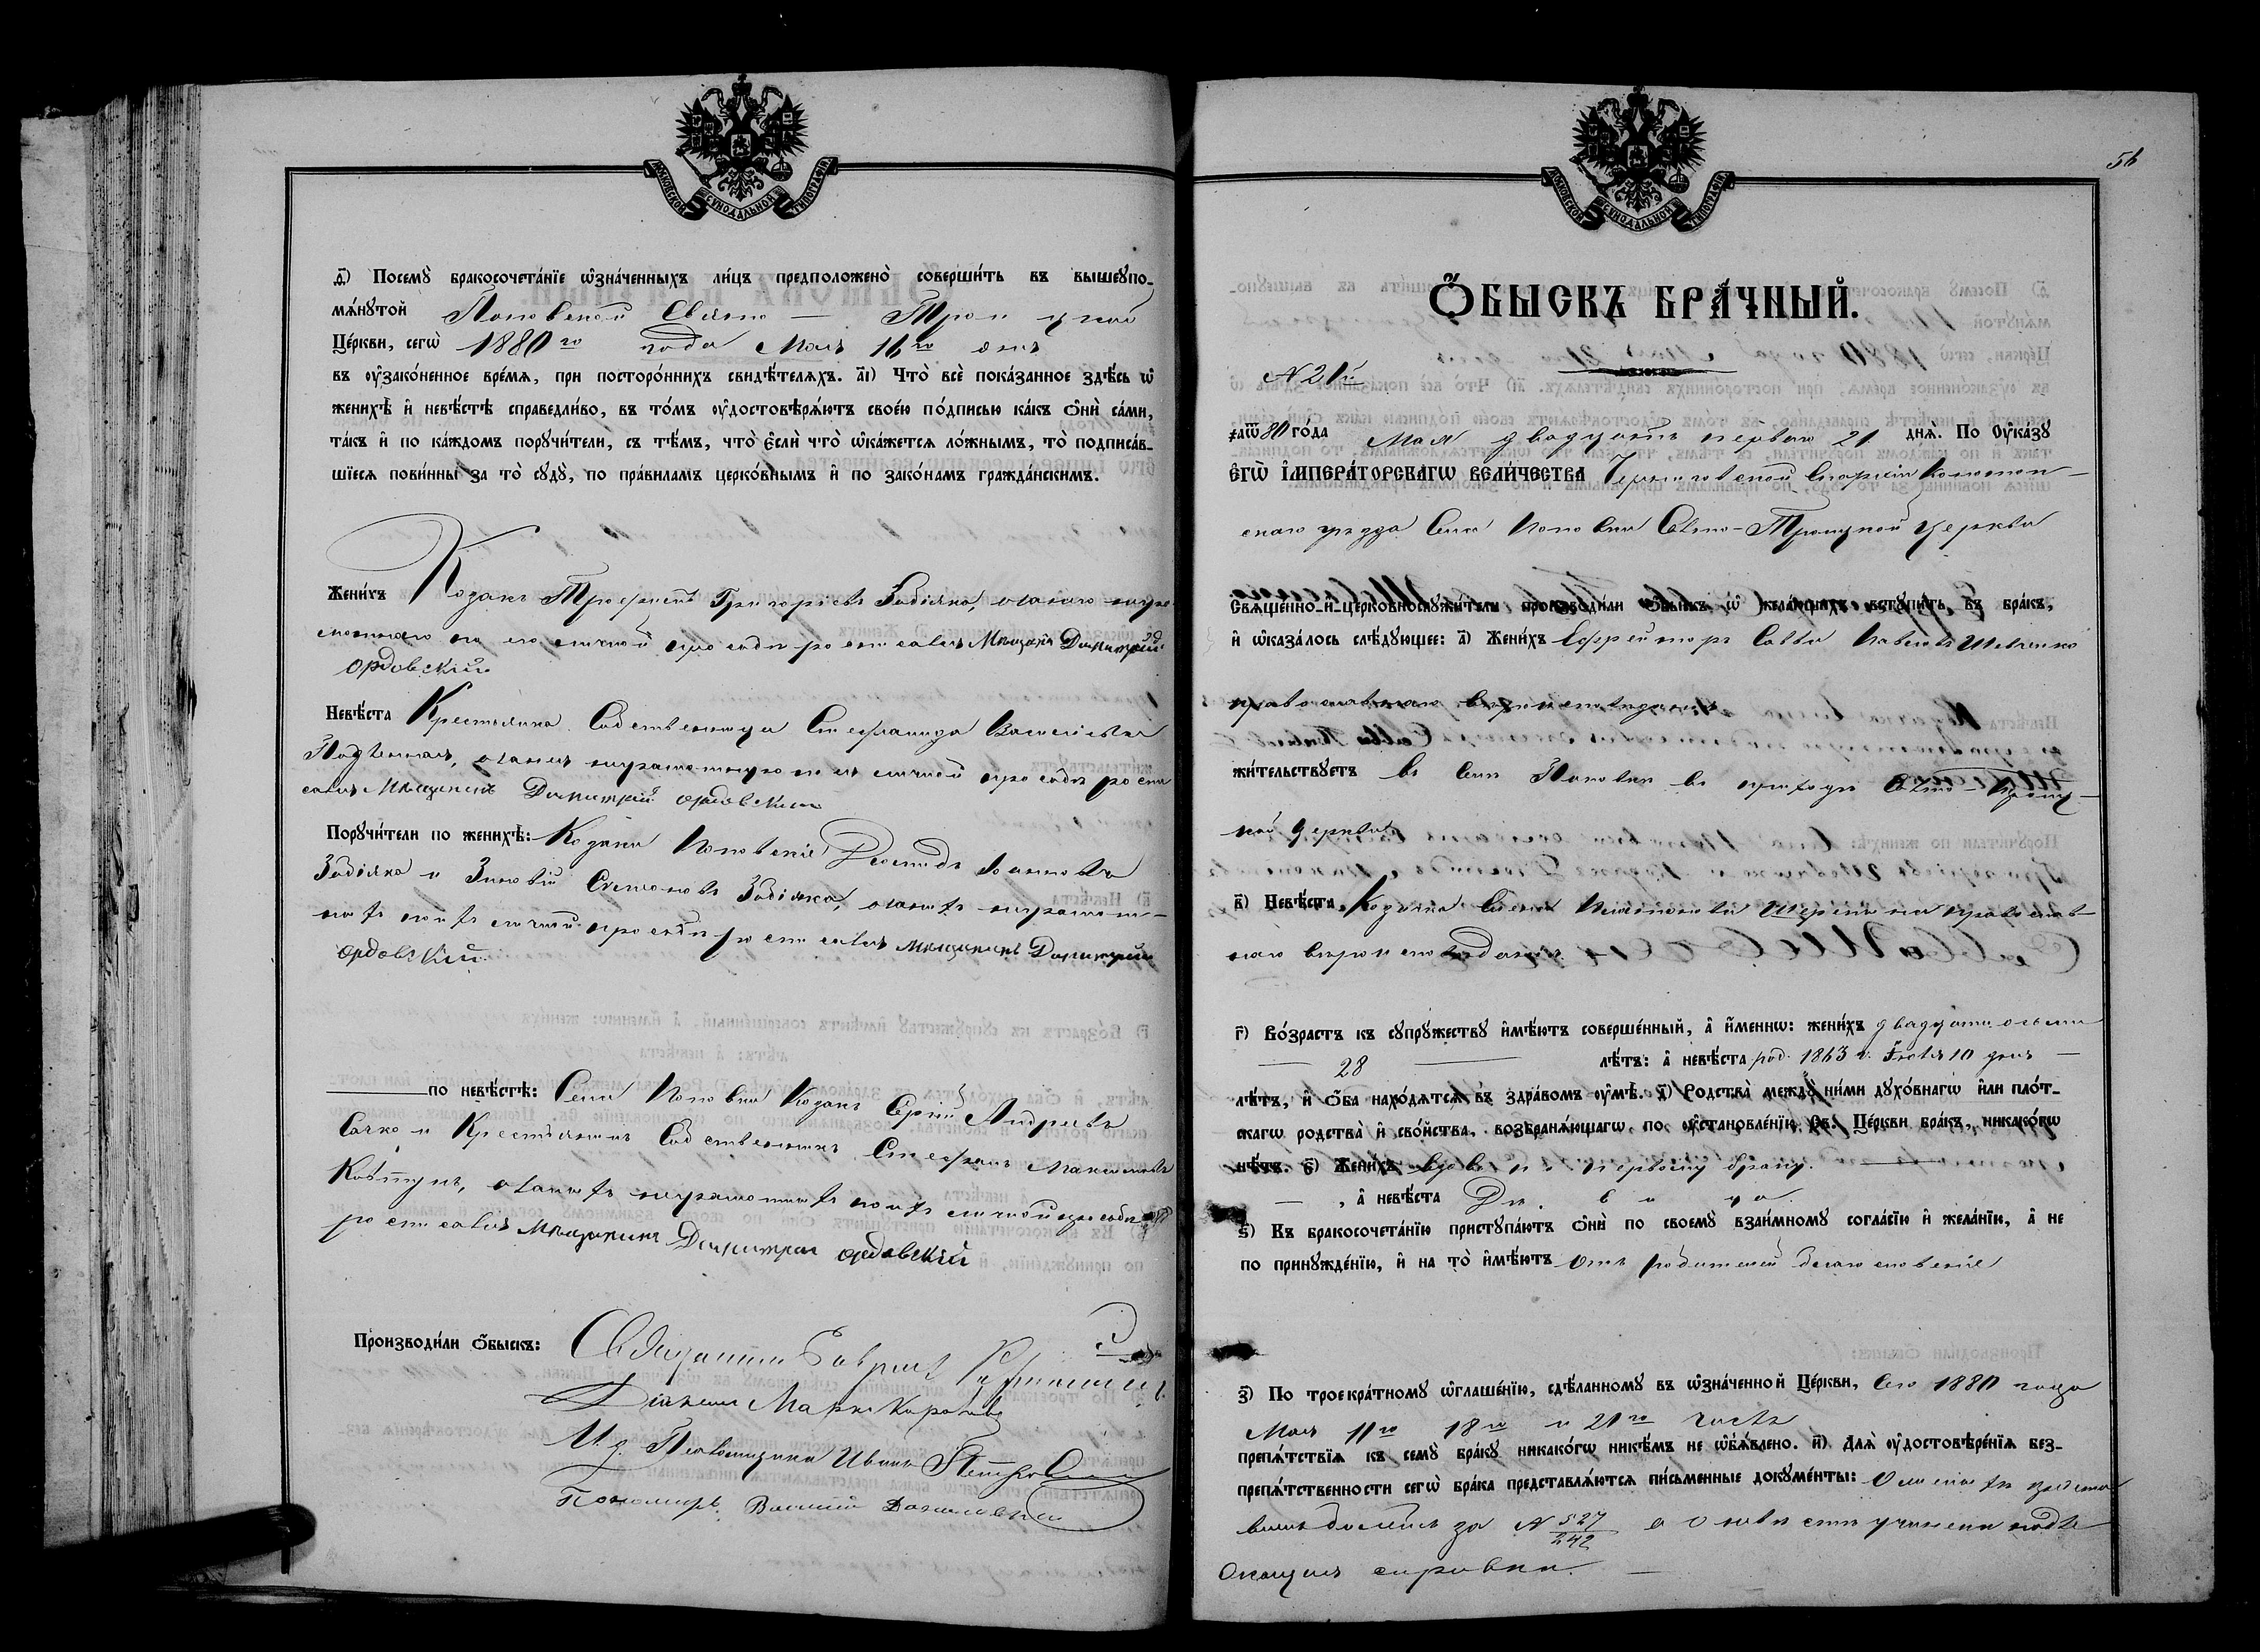 МОСКОВСКОЙ СѴНОДАЛЬНОЙ ТИПОГРАФІИ
д҃) Посемꙋ̀ бракосочета́нїе ѡ҆зна́ченныхъ ли́цъ предположено̀ соверши́ть въ вышеꙋпо-
мѧ́нꙋтой Поповской Свято — Троицкой
Це́ркви, сегѡ̀ 1880 го года Мая 16 го дня
въ ᲂу҆зако́ненное вре́мѧ, при посторо́ннихъ свидѣ́телѧхъ. а҃і) Что̀ всѐ пока́занное здѣ́сь ѡ҆
женихѣ̀ и҆ невѣ́стѣ справедли́во, въ то́мъ ᲂу҆достовѣрѧ́ютъ свое́ю по́дписью ка́къ ѻ҆нѝ са́ми,
та́къ и҆ по ка́ждомъ порꙋчи́тели, съ тѣ́мъ, что̀ є҆слѝ что̀ ѡ҆ка́жетсѧ ло́жнымъ, то̀ подписа́в-
шїесѧ пови́нны за то̀ сꙋдꙋ̀, по пра́виламъ церко́внымъ и҆ по зако́намъ гражда́нскимъ.
Жени́хъ Козакъ Трофимъ Григоріевъ Забіяка, а за него негра-
мотнаго по его личной просьбѣ росписался Мѣщанинъ Димитрій
Ордовскій
Невѣ́ста Крестьянка Собственница Стефанида Васильева
а за нея неграмотную по ея личной просьбѣ роспи
сался Мѣщанинъ Димитрій Ордовскій
Порꙋчи́тели по женихѣ̀: Козаки Поповскіе Леонидъ Іоанновъ
Забіяка и Зиновій Семеновъ Забіяка, а за нихъ неграмот-
ныхъ по ихъ личной просьбѣ росписался Мѣщанинъ Димитрій
Ордовскій.
по невѣ́стѣ: Села Поповки Козакъ Сергій Андреевъ
Сачко и Крестьянинъ Собственникъ Стефанъ Максимовъ
Ковтунъ, а за нихъ неграмотныхъ по ихъ личной просьбѣ
росписался Мѣщанинъ Димитрій Ордовскій
Производи́ли ѻ҆́быскъ: Священникъ Гавріилъ
Діаконъ Маркъ
И. д. Псаломщика Иванъ
Пономарь Василій
56
МОСКОВСКОЙ СѴНОДАЛЬНОЙ ТИПОГРАФІИ
Ѻ҆́БЫСКЪ БРА́ЧНЫЙ.
№ 21й
҂аѡ҃ 80 го́да Мая двадцать перваго 21 днѧ̀. По Оу҆ка́зꙋ
Є҆ГѠ̀ І҆МПЕРА́ТОРСКАГѠ ВЕЛИ́ЧЕСТВА Черниговской Епархіи Конотоп-
скаго уѣзда Села Поповки Свято-Троицкой Церкви
Свѧще́нно-и҆-церковнослꙋжи́тели производи́ли ѻ҆́быскъ ѡ҆ жела́ющихъ встꙋпи́ть въ бра́къ,
и҆ ѡ҆каза́лось слѣ́дꙋющее: а҃) Жени́хъ Ефрейторъ Савва Павловъ Шевченко
православнаго вѣроисповѣданія
жи́тельствꙋетъ въ селѣ Поповкѣ въ приходѣ Свято-Троиц-
кой Церкви
в҃) Невѣ́ста Козачка Елена православ-
наго вѣроисповѣданія
г҃) Во́зрастъ къ сꙋпрꙋ́жествꙋ и҆мѣ́ютъ соверше́нный, а҆ и҆́меннѡ: жени́хъ двадцати осьми
— 28 — лѣ́тъ: а҆ невѣ́ста род. 1863 г. Іюля 10 дня —
лѣ́тъ, и҆ ѻ҆́ба нахо́дѧтсѧ въ здра́вомъ ᲂу҆мѣ̀. д҃) Родства̀ междꙋ̀ ни́ми дꙋхо́внагѡ и҆лѝ пло́т-
скагѡ родства̀ и҆ сво́йства, возбранѧ́ющагѡ, по ᲂу҆становле́нїю Св. Це́ркви бра́къ, никако́гѡ
нѣ́тъ. є҃) Жени́хъ вдовъ по первому браку. —
—, а҆ невѣ́ста Дѣвица
ѕ҃) Къ бракосочета́нїю пристꙋпа́ютъ ѻ҆нѝ по своемꙋ̀ взаи́мномꙋ согла́сїю и҆ жела́нїю, а҆ не
по принꙋжде́нїю, и҆ на то̀ и҆мѣ́ютъ отъ родителей благословеніе
з҃) По троекра́тномꙋ ѡ҆глаше́нїю, сдѣ́ланномꙋ въ ѡ҆зна́ченной Це́ркви, Сего 1880 года
Мая 11 го 18 го и 21 го числъ
препѧ́тствїѧ къ семꙋ̀ бра́кꙋ никако́гѡ никѣ́мъ не ѡ҆б̾ѧ́влено. и҃) Длѧ̀ ᲂу҆достовѣре́нїѧ без-
препѧ́тственности сегѡ̀ бра́ка представлѧ́ютсѧ пи́сьменные докꙋме́нты: О женихѣ
билетъ за № 527/242 а о невѣстѣ учинена подле-
жащая справка. —